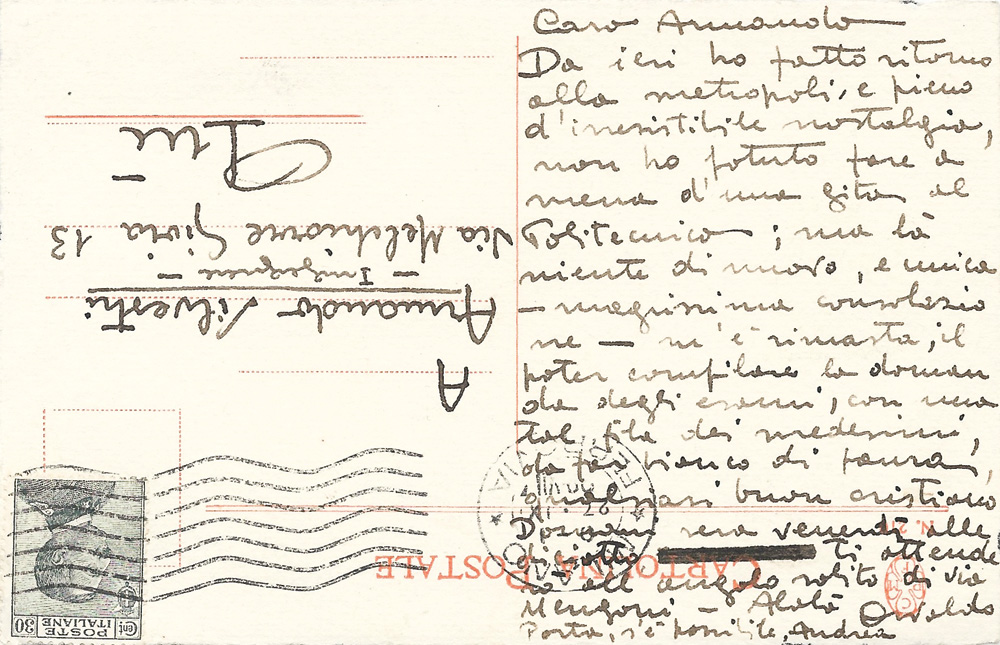 Caro Armando
Da ieri ho fatto ritorno
alla metropoli, e pieno
d'irresistibile nostalgia,
non ho potuto fare a
meno d'una gita al
Politecnico; ma là
niente di nuovo, e unica
- magrissima consolazio
ne - m'è rimasta, il
poter compilare la doman
da degli esami, con una
tal fila dei medesimi,
da far bianco di paura,
qualsiasi buon cristiano
Domani sera venerdì alle
diciotto ti attende
rò all'angolo solito di via
Mengoni - Alalà Osvaldo
Porta, s'è possibile, Andrea
A
Armando Silvestri
- Ingegnere -
Via Melchiorre Gioia 13
Qui
CARTOLINA POSTALE
POSTE
ITALIANE
Cent 30